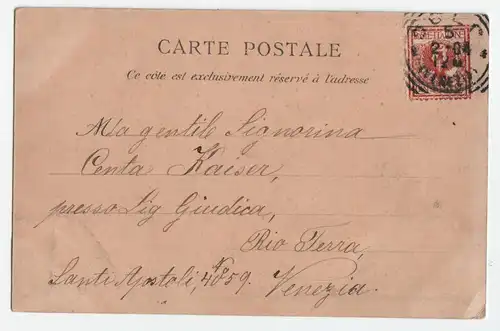 CARTE POSTALE
Ce côté est exclusivement réservé à l'adresse
Alla gentile Signorina
Centa Kaiser,
presso Sig Giudica,
Rio Terra,
Santi Apostoli, No 4059. Venezia.